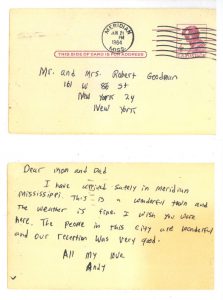 MERIDIAN
JUN 21
PM
1964
MISS.
THIS SIDE OF CARD IS FOR ADDRESS
Mr. and Mrs. Robert Goodman
161 W 86 St
New York 24
New York
Dear Mom and Dad
I have arrived safely in Meridian
Mississippi. This is a wonderful town and
the weather is fine. I wish you were
here. The people in this city are wonderful
and our reception was very good.
All my love
Andy